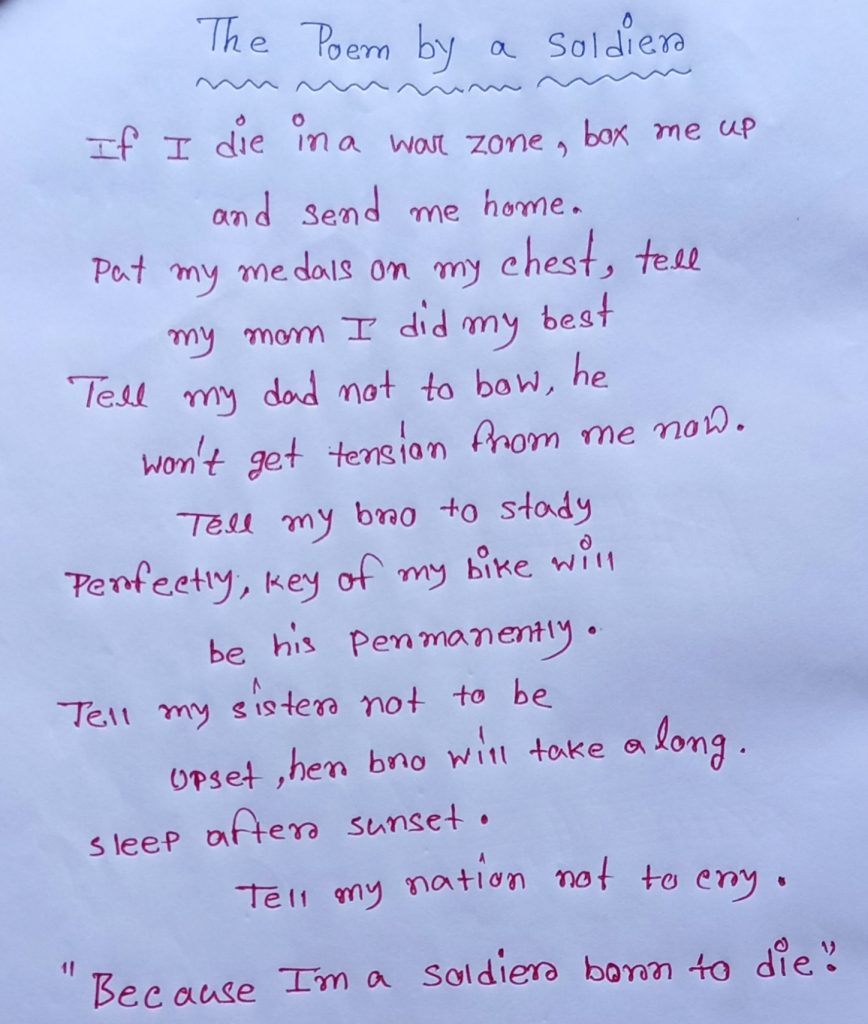 The Poem by a Soldier
If I die in a war zone, box me up
and send me home.
Put my medals on my chest, tell
my mom I did my best
Tell my dad not to bow, he
won't get tension from me now.
Tell my bro to study
Perfectly, key of my bike will
be his permanently.
Tell my sister not to be
upset, her bro will take a long.
sleep after sunset.
Tell my nation not to cry.
"Because I'm a soldier born to die"